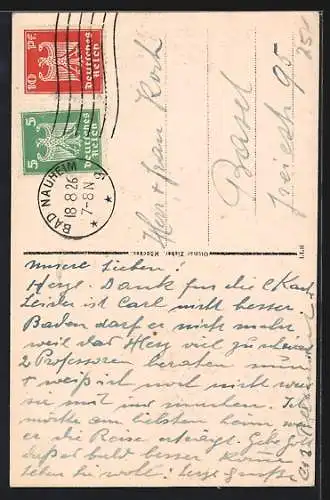 10 Pf.
Deutsches
Reich
5
Deutsches
Reich
BAD NAUHEIM
18.8.26
7-8 N
Herr + Frau Koch
Basel
Freiestr 95
Ottmar Zieher, München
Unsere Lieben!
Herzl. Dank für die Karte
Leider ist Carl nicht besser
Baden darf er nicht mehr
weil das Herz viel zu
2 Professoren beraten nun
+ weiß ich noch nicht was
sie mit uns machen. Ich
möchte am liebsten heim wenn
er die Reise erträgt. Gebe Gott
daß es bald besser
Leben Sie wohl! Herzl. Grüße